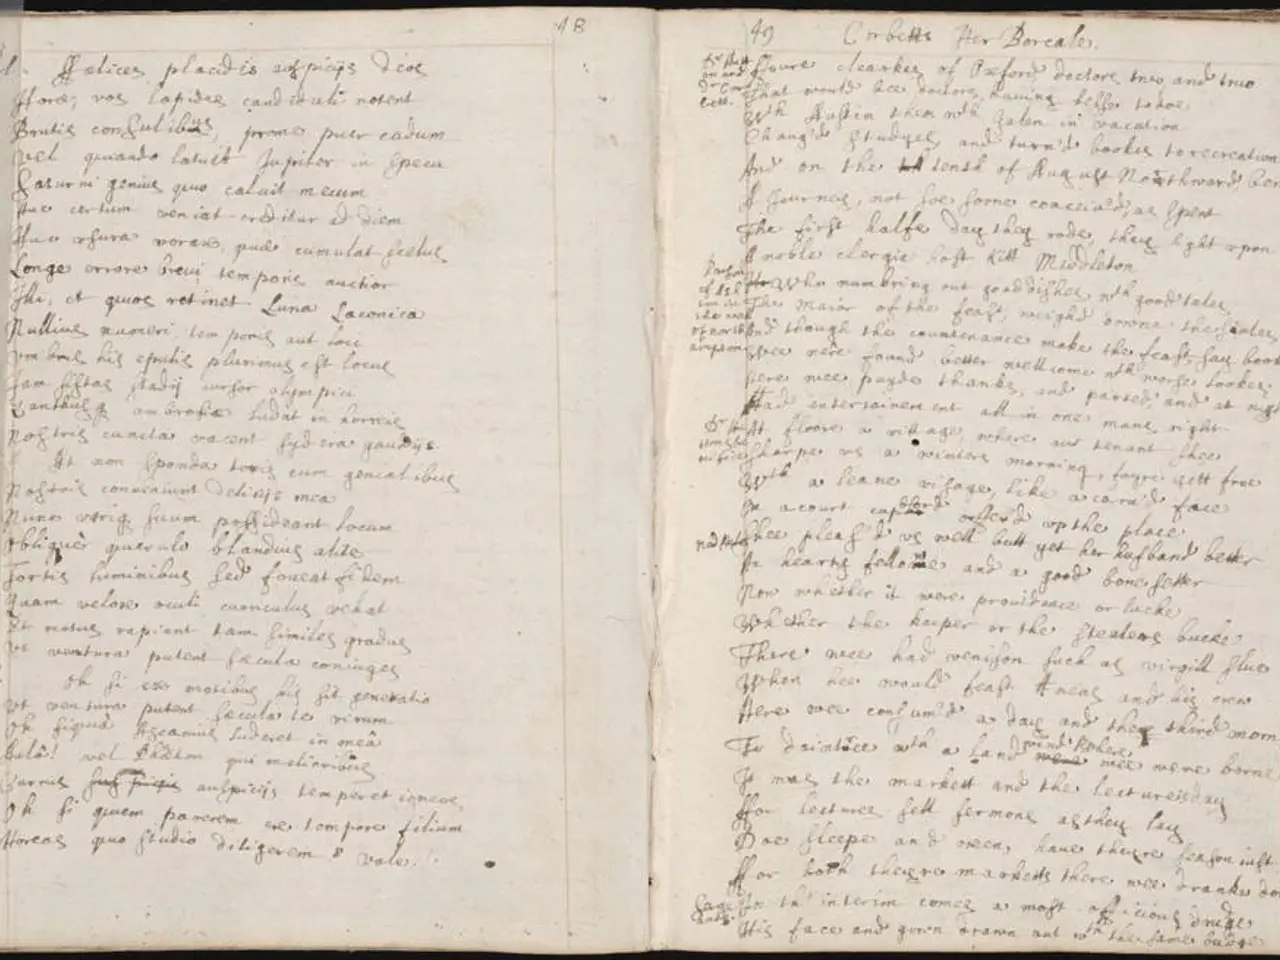 48
Fælices placidis auspicijs dies
vos lapides candiduli notent
Brutis consulibus, prome puer cadum
Vel quando latuit Jupiter in specu
Saturni genius quo caluit merum
certum veniat creditur ad diem
usura vorax, quæ cumulat fœtus
Longe errore brevi temporis auctior
et quos retinet Luna Laconica
Nullius numeri, temporis aut loci
his epulis plurimus est locus
Jam sistas stadij cursor olympici
Xanthusq ambrosiæ ludat in horreis
Nostris cuncta vacent sydera gaudijs
At non sponda toris cum genialibus
Nostris conveniunt delitijs mea
Nunc utriq suum possideant locum
Obliquè querulo blandius alite
Fortis luminibus sed foveat fidem
Quam velox oculi curriculus vehat
Et motus rapiant tam similes gradus
Ut ventura putent sæcula coniuges
Oh si ex moribus his sit generatio
Ut ventura putent sæcula te virum
Oh siquis luderet in meâ
Aulâ! vel qui melioribus
auspicijs temperet igneos
Oh si quem parerem ex tempore filium
quo studio diligerem & vale!
49 Corbetts Iter Boreale.
Foure clearkes of Oxford, doctors two, and two
That would bee doctors, having lesse to doe
Wth Austin then wth Galen in vacation
Chang'd studyes, and turn'd bookes to recreation
And on the tenth of August Northward ben
A Journey, not soe soone conceiv'd, as spent
The first halfe day they rode, they light upon
A noble clergie host Kitt Middleton
Who numbring out good dishes wth good tales
The maior of the feast, weighd downe the scales
And though the countenance make the feast, say book
Wee nere found better wellcome wth worse lookes
Here wee payde thanks, and parted, and at night
Had entertainement all in one mans right
At Floore a village, where our tenant shee
Sharpe as a winters morning, fayre yett free
Wth a leane visage, like a carv'd face
In a court cupbord offer'd up the place
Shee pleas'd us well butt yet her husband better
A hearty fellowe and a good bone setter
Now whether it were providence or lucke
Whether the keeper or the stealers bucke
There wee had venison such as virgill slue
When hee would feast Æneas and his crew
Here wee consum'd a day and the third morn
To daintree wth a land wind where wee were borne
It was the markett and the lectures day
For lecturers sell sermons as they lay
Doe sheepe and oxen, have theyre season iust
For both theyre marketts there wee dranke do
In th' interim comes a most officious drudge
His face and gown drawn out wth the same budge